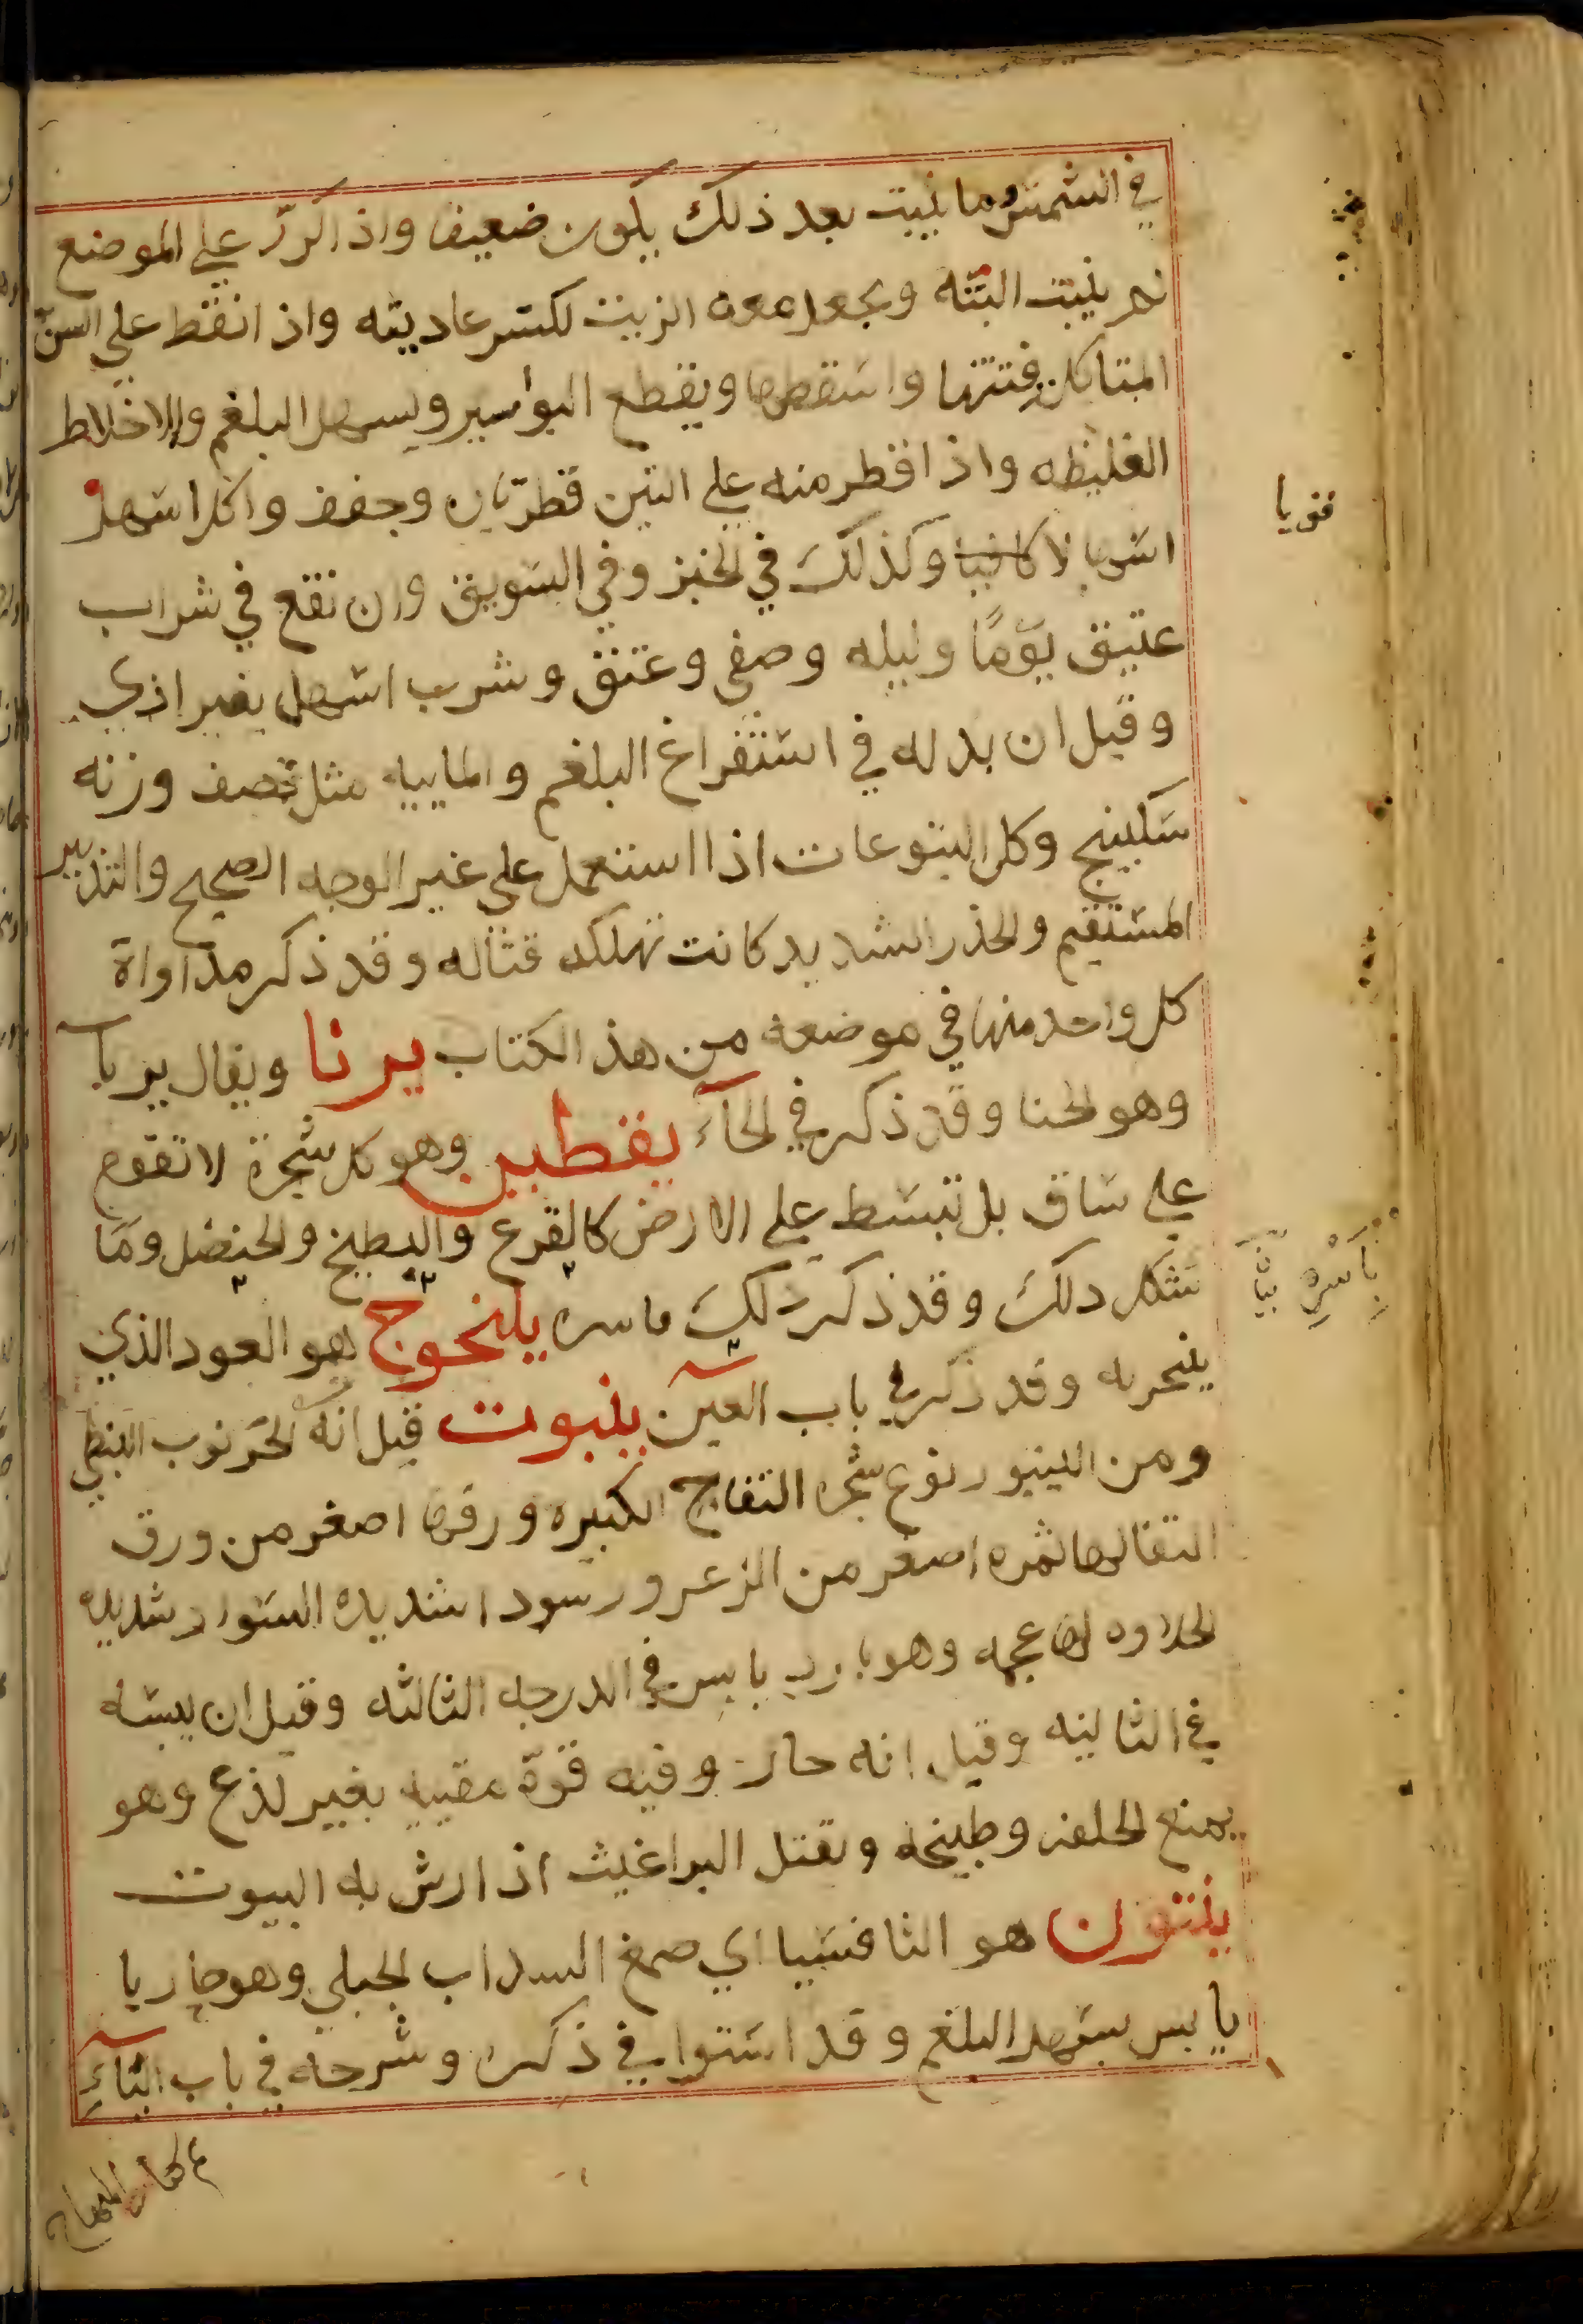 في الشمس وما ينبت بعد ذلك يكون ضعيفا واذا كرر علي الموضع
لم ينبت البتّه ويجعل معه الزيت لكسر عاديته واذا نقط علي السنّ
المتاكل فتتها واسقطها ويقطع البواسير ويسهل البلغم والاخلاط
الغليظه واذا قطر منه علي التين قطرتان وجفف واكل اسهل
اسهالا كافيا وكذلك في الخبز وفي السويق وان نقع في شراب
عتيق يومًا وليله وصفي وعتق وشرب اسهل بغير اذي
وقيل ان بدله في استفراغ البلغم والماييه مثل نصف وزنه
سكبينج وكل اليتوعات اذا استعمل علي غير الوجه الصحيح والتدبير
المستقيم والحذر الشديد كانت مهلكه قتاله وقد ذكر مداواة
كل واحد منها في موضعه من هذ الكتاب يرنا ويقال يرنا
وهو الحنا وقد ذكر في الحآء يقطين وهو كل شجرة لا تقوم
علي ساق بل تبسط علي الارض كالقرع والبطيخ والحنضل وما
شكل دلك وقد ذكر ذلك باسره يلنجوج هو العود الذي
يتبخر به وقد ذكر في باب العين ينبوت قيل انه الخرنوب النبطي
ومن الينبو نوع شجره التفاح الكبيره ورقها اصغر من ورق
التفا لها ثمره اصغر من الزعرور سودا شديده السواد شديده
الحلاوه لها عجمه وهو بارد يابس في الدرجه الثالثه وقيل ان يبسه
في الثانيه وقيل انه حار وفيه قوّة مقييه بغير لذع وهو
يمنع الخلفه وطبيخه ويقتل البراغيث اذا رش به البيوت
ينتون هو الثافسيا اي صمغ السداب الجبلي وهو حار يا
يابس يسهل البلغم وقد استوا في ذكره وشرحه في باب الثآء
قويا
باسره بيان